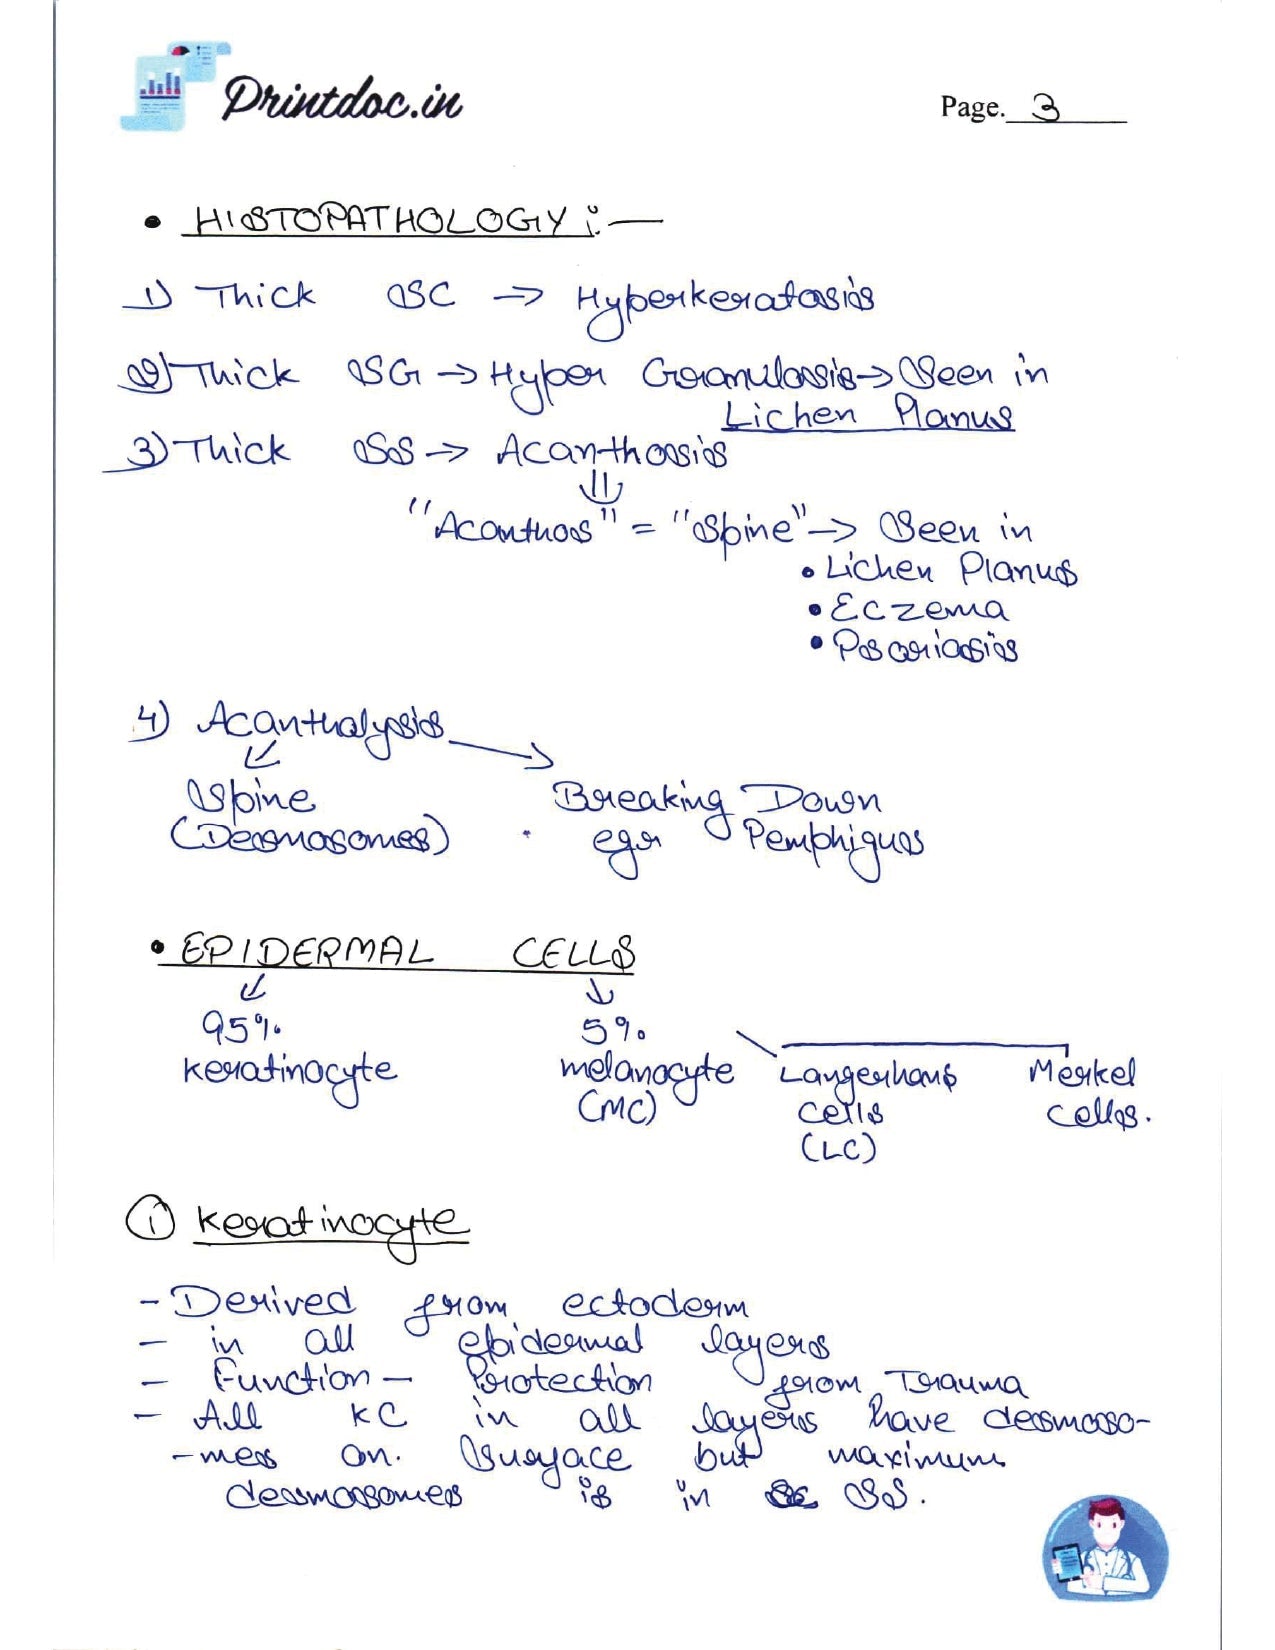 Printdoc.in
Page. 3
• HISTOPATHOLOGY :-
1) Thick SC → Hyperkeratosis
2) Thick SG → Hyper Granulosis → Seen in
Lichen Planus
3) Thick SS → Acanthosis
"Acanthos" = "Spine" → Seen in
• Lichen Planus
• Eczema
• Psoriasis
4) Acantholysis
Spine Breaking Down
(Desmosomes) eg. Pemphigus
• EPIDERMAL CELLS
95% 5%
keratinocyte melanocyte Langerhans Merkel
(MC) cells cells.
(LC)
① keratinocyte
- Derived from ectoderm
- in all epidermal layers
- Function - Protection from Trauma
- All KC in all layers have desmoso-
-mes on. Surface but maximum
desmosomes is in SS.